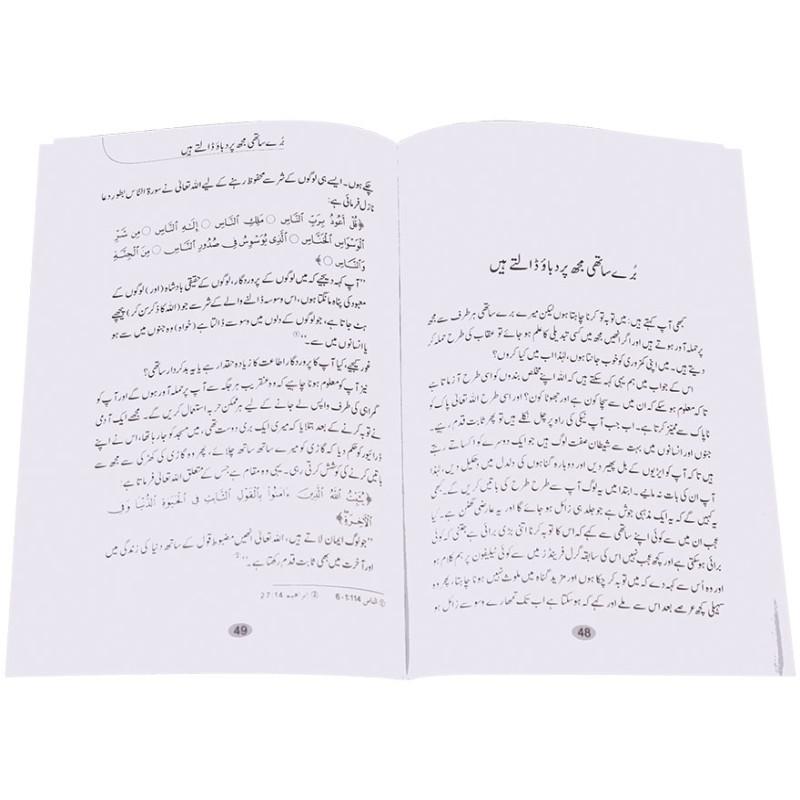 بُرے ساتھی مجھ پر دباؤ ڈالتے ہیں
کبھی آپ کہتے ہیں: میں توبہ تو کرنا چاہتا ہوں لیکن میرے برے ساتھی ہر طرف سے مجھ
پر حملہ آور ہوتے ہیں اور اگر انھیں مجھ میں کسی تبدیلی کا علم ہو جائے تو عقاب کی طرح حملہ کر
دیتے ہیں۔ میں اپنی کمزوری کو خوب جانتا ہوں، لہٰذا اب میں کیا کروں؟
اس کے جواب میں ہم یہی کہہ سکتے ہیں کہ اللہ اپنے مخلص بندوں کو اسی طرح آزماتا ہے
تاکہ معلوم ہو سکے کہ ان میں سے سچا کون ہے اور جھوٹا کون؟ اور اسی طرح اللہ تعالیٰ پاک کو
ناپاک سے ممیّز کرتا ہے۔ اب جب آپ نیکی کی راہ پر چل نکلے ہیں تو پھر ثابت قدم رہیے۔
جنوں اور انسانوں میں بہت سے شیطان صفت لوگ ہیں جو ایک دوسرے کو اکساتے رہتے
ہیں تاکہ آپ کو ایڑیوں کے بل پھیر دیں اور دوبارہ گناہوں کی دلدل میں دھکیل دیں، لہٰذا
آپ ان کی بات نہ مانیے۔ ابتدا میں یہ لوگ آپ سے طرح طرح کی باتیں کریں گے۔ کبھی
یہ کہیں گے کہ یہ ایک مذہبی جوش ہے جو جلد ہی زائل ہو جائے گا اور یہ عارضی گھٹن ہے۔ کیا
عجب ان میں سے کوئی اپنے ساتھی سے کہے کہ اس کا توبہ کرنا اتنی بڑی برائی ہے جتنی کہ کوئی
برائی ہو سکتی ہے اور کچھ عجب نہیں اس کی سابقہ گرل فرینڈز میں سے کوئی ٹیلیفون پر ہم کلام ہو
اور وہ اُس سے کہہ دے کہ میں توبہ کر چکا ہوں اور مزید گناہ میں ملوث نہیں ہونا چاہتا، پھر وہ
سہیلی کچھ عرصے بعد اس سے ملے اور کہے کہ ہو سکتا ہے اب تک تمھارے وسوسے زائل ہو
48
بُرے ساتھی مجھ پر دباؤ ڈالتے ہیں
چکے ہوں۔ ایسے ہی لوگوں کے شر سے محفوظ رہنے کے لیے اللہ تعالیٰ نے سورۃ الناس بطور دعا
نازل فرمائی ہے:
﴿قُلْ أَعُوذُ بِرَبِّ ٱلنَّاسِ ○ مَلِكِ ٱلنَّاسِ ○ إِلَـٰهِ ٱلنَّاسِ ○ مِن شَرِّ
ٱلْوَسْوَاسِ ٱلْخَنَّاسِ ○ ٱلَّذِى يُوَسْوِسُ فِى صُدُورِ ٱلنَّاسِ ○ مِنَ ٱلْجِنَّةِ
وَٱلنَّاسِ ○﴾
”آپ کہہ دیجیے کہ میں لوگوں کے پروردگار، لوگوں کے حقیقی بادشاہ (اور) لوگوں کے
معبود کی پناہ مانگتا ہوں، اس وسوسہ ڈالنے والے کے شر سے جو (اللہ کا ذکر سن کر) پیچھے
ہٹ جاتا ہے، جو لوگوں کے دلوں میں وسوسے ڈالتا ہے (خواہ) وہ جنوں میں سے ہو
یا انسانوں میں سے۔“①
غور کیجیے، کیا آپ کا پروردگار اطاعت کا زیادہ حقدار ہے یا یہ بدکردار ساتھی؟
نیز آپ کو معلوم ہونا چاہیے کہ وہ عنقریب ہر جگہ سے آپ پر حملہ آور ہوں گے اور آپ کو
گمراہی کی طرف واپس لے جانے کے لیے ہر ممکن حربہ استعمال کریں گے۔ مجھے ایک آدمی
نے توبہ کرنے کے بعد بتلایا کہ میری ایک بری دوست تھی، میں مسجد کو جا رہا تھا، اس نے اپنے
ڈرائیور کو حکم دیا کہ گاڑی کو میرے ساتھ ساتھ چلائے، پھر وہ گاڑی کی کھڑکی سے مجھ سے
باتیں کرنے کی کوشش کرتی رہی۔ یہی وہ مقام ہے جس کے متعلق اللہ تعالیٰ فرماتا ہے:
﴿يُثَبِّتُ ٱللَّهُ ٱلَّذِينَ ءَامَنُوا۟ بِٱلْقَوْلِ ٱلثَّابِتِ فِى ٱلْحَيَوٰةِ ٱلدُّنْيَا وَفِى
ٱلْـَٔاخِرَةِ﴾
”جو لوگ ایمان لاتے ہیں، اللہ تعالیٰ انھیں مضبوط قول کے ساتھ دنیا کی زندگی میں
اور آخرت میں بھی ثابت قدم رکھتا ہے۔“②
① الناس 114:1-6 ② إبراهيم 27:14
49